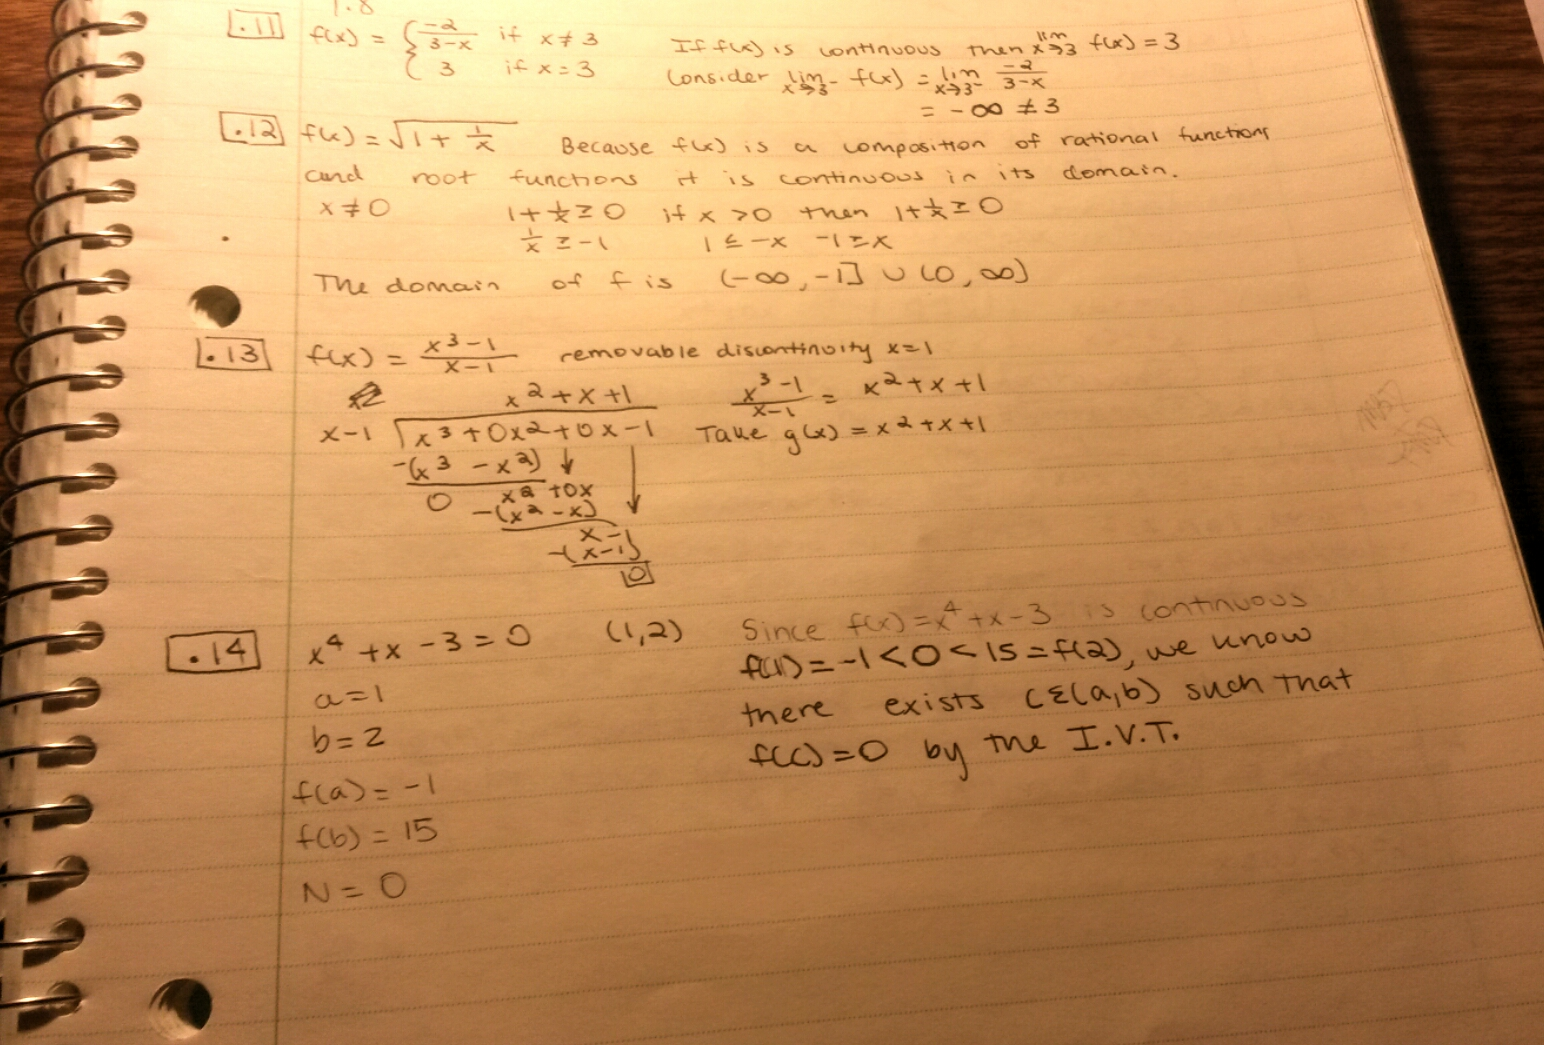 1.8
.11 f(x) = { -2/(3-x) if x≠3 If f(x) is continuous then lim x→3 f(x) = 3
3 if x=3 Consider lim x→3⁻ f(x) = lim x→3⁻ -2/(3-x)
= -∞ ≠ 3
.12 f(x) = √(1 + 1/x) Because f(x) is a composition of rational functions
and root functions it is continuous in its domain.
x≠0 1+1/x ≥ 0 if x >0 then 1+1/x ≥ 0
1/x ≥ -1 1 ≤ -x -1 ≥ x
The domain of f is (-∞, -1] ∪ (0, ∞)
.13 f(x) = (x³-1)/(x-1) removable discontinuity x=1
x²+x+1 (x³-1)/(x-1) = x²+x+1
x-1 x³+0x²+0x-1 Take g(x) = x²+x+1
-(x³ - x²) ↓
0 x² +0x
-(x² - x)
x-1
-(x-1)
0
.14 x⁴ +x -3 = 0 (1,2) Since f(x)=x⁴+x-3 is continuous
a=1 f(1)=-1<0<15=f(2), we know
b=2 there exists c∈(a,b) such that
f(c)=0 by the I.V.T.
f(a) = -1
f(b) = 15
N = 0